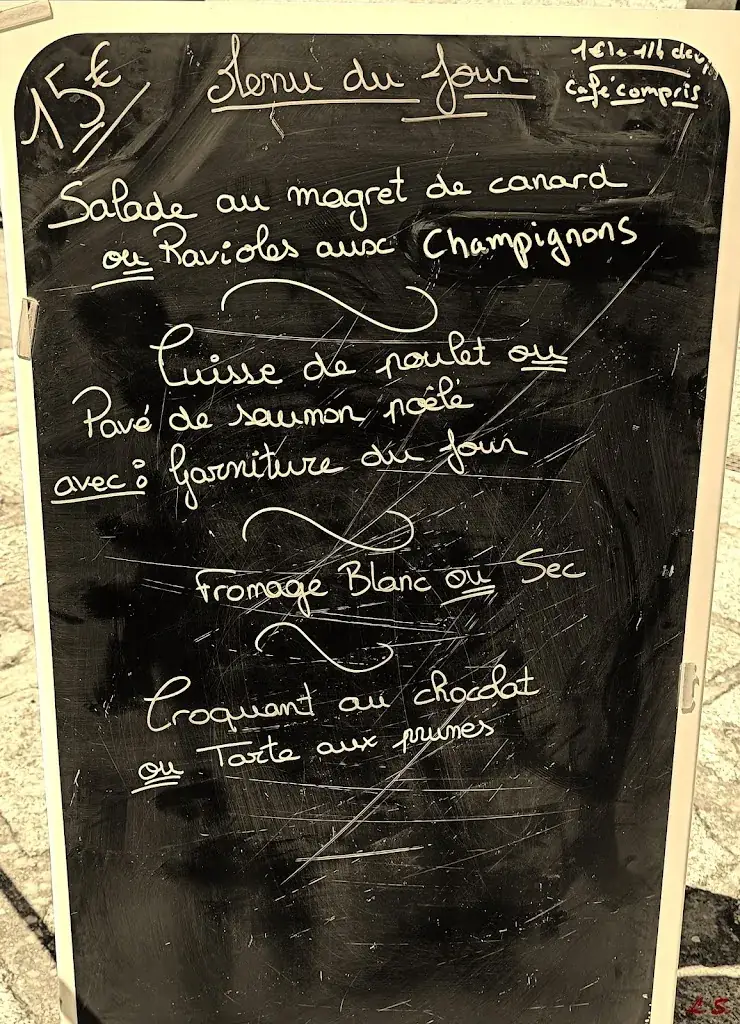 15€
Menu du Jour
1€ le 1/4 de v
café compris
Salade au magret de canard
ou Ravioles aux Champignons
Cuisse de poulet ou
Pavé de saumon poêlé
avec : Garniture du jour
Fromage Blanc ou Sec
Croquant au chocolat
ou Tarte aux prunes
L.S.